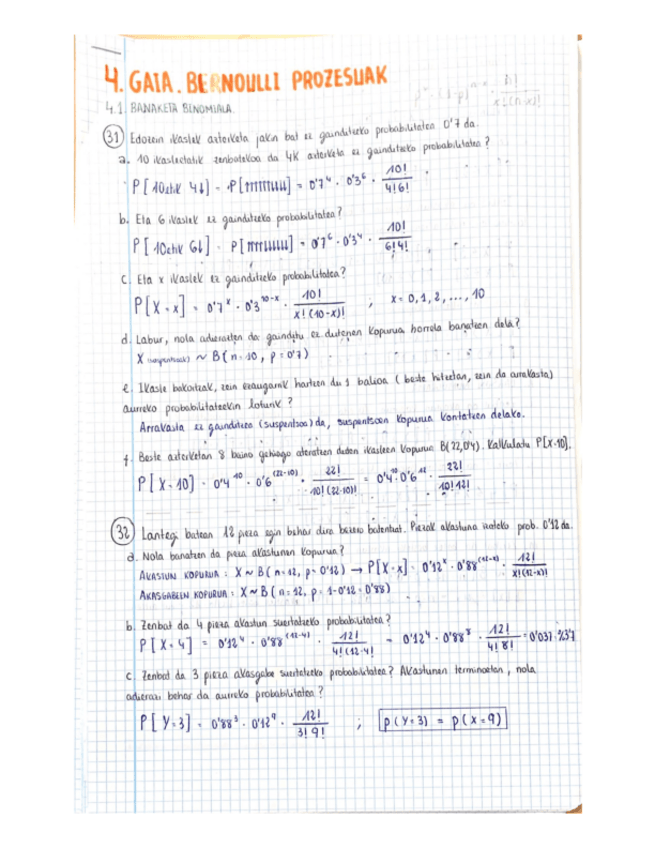 4. GAIA. BERNOULLI PROZESUAK
4.1. BANAKETA BINOMIALA.
31 Edozein ikaslek azterketa jakin bat ez gainditzeko probabilitatea 0'7 da.
a. 10 ikasletatik zenbatekoa da 4k azterketa ez gainditzeko probabilitatea?
P[10etik 4↓] = P[rrrrrrllll] = 0'7⁴ · 0'3⁶ · 10! / 4!6!
b. Eta 6 ikaslek ez gainditzeko probabilitatea?
P[10etik 6↓] = P[rrrrllllll] = 0'7⁶ · 0'3⁴ · 10! / 6!4!
c. Eta x ikaslek ez gainditzeko probabilitatea?
P[X=x] = 0'7ˣ · 0'3¹⁰⁻ˣ · 10! / x!(10-x)! , x=0,1,2,...,10
d. Labur, nola adierazten da gainditu ez dutenen kopurua horrela banatzen dela?
X ~ B(n=10, p=0'7)
e. Ikasle bakoitzak, zein ezaugarrik hartzen du 1 balioa (beste hitzetan, zein da arrakasta)
aurreko probabilitateekin loturik?
Arrakasta ez gainditzea (suspentsoa) da, suspentsoen kopurua kontatzen delako.
f. Beste azterketan 8 baino gehiago ateratzen duten ikasleen kopurua B(22,0'4). Kalkulatu P[X=10].
P[X=10] = 0'4¹⁰ · 0'6⁽²²⁻¹⁰⁾ · 22! / 10!(22-10)! = 0'4¹⁰ · 0'6¹² · 22! / 10!12!
32 Lantegi batean 12 pieza egin behar dira bezero batentzat. Piezak akastuna izateko prob. 0'12 da.
a. Nola banatzen da pieza akastunen kopurua?
AKASTUN KOPURUA: X~B(n=12, p=0'12) → P[X=x] = 0'12ˣ · 0'88⁽¹²⁻ˣ⁾ · 12! / x!(12-x)!
AKASGABEEN KOPURUA: X~B(n=12, p=1-0'12=0'88)
b. Zenbat da 4 pieza akastun suertatzeko probabilitatea?
P[X=4] = 0'12⁴ · 0'88⁽¹²⁻⁴⁾ · 12! / 4!(12-4)! = 0'12⁴ · 0'88⁸ · 12! / 4!8! = 0'037 %3'7
c. Zenbat da 3 pieza akasgabe suertatzeko probabilitatea? Akastunen terminoetan, nola
adierazi behar da aurreko probabilitatea?
P[Y=3] = 0'88³ · 0'12⁹ · 12! / 3!9! ; p(Y=3) = p(X=9)